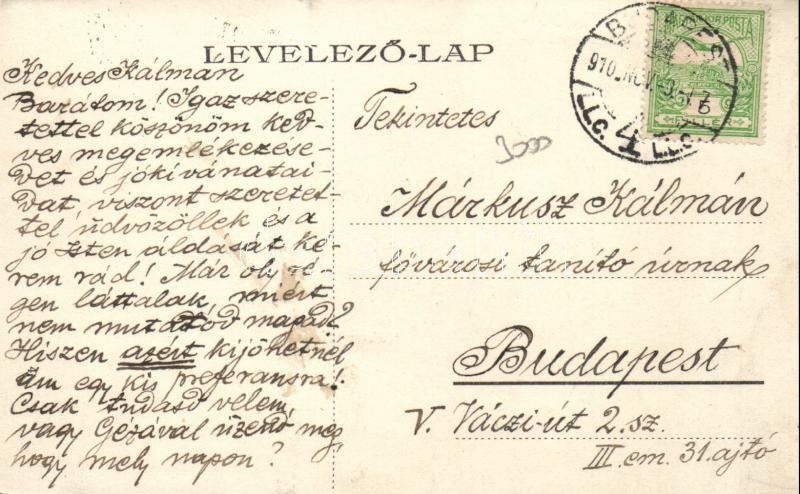 LEVELEZŐ-LAP
Kedves Kálmán
Barátom! Igaz szere-
tettel köszönöm ked-
ves megemlékezése-
det és jókivánatai-
dat, viszont szeretet-
tel üdvözöllek és a
jó Isten áldását ké-
rem rád! Már oly ré-
gen láttalak, miért
nem mutatod magad?
Hiszen azért kijöhetnél
ám egy kis preferansra!
Csak tudasd velem,
vagy Gézával üzend meg
hogy mely napon?
Tekintetes
3000
Márkusz Kálmán
fővárosi tanító úrnak
Budapest
V. Váczi-út 2. sz.
III. em. 31. ajtó
BUDAPEST
910 NOV
POSTA
FILLÉR